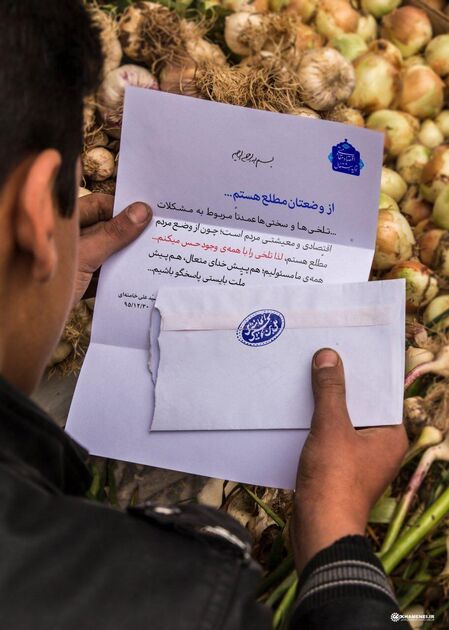 از وضعتان مطلع هستم...
...تلخی‌ها و سختی‌ها عمدتاً مربوط به مشکلات
اقتصادی و معیشتی مردم است؛ چون از وضع مردم
مطلع هستم، لذا تلخی را با همه‌ی وجود حس میکنم...
همه‌ی ما مسئولیم؛ هم پیش خدای متعال، هم پیش
ملت بایستی پاسخگو باشیم...
سید علی خامنه‌ای
۹۵/۱۲/۲۰
KHAMENEI.IR